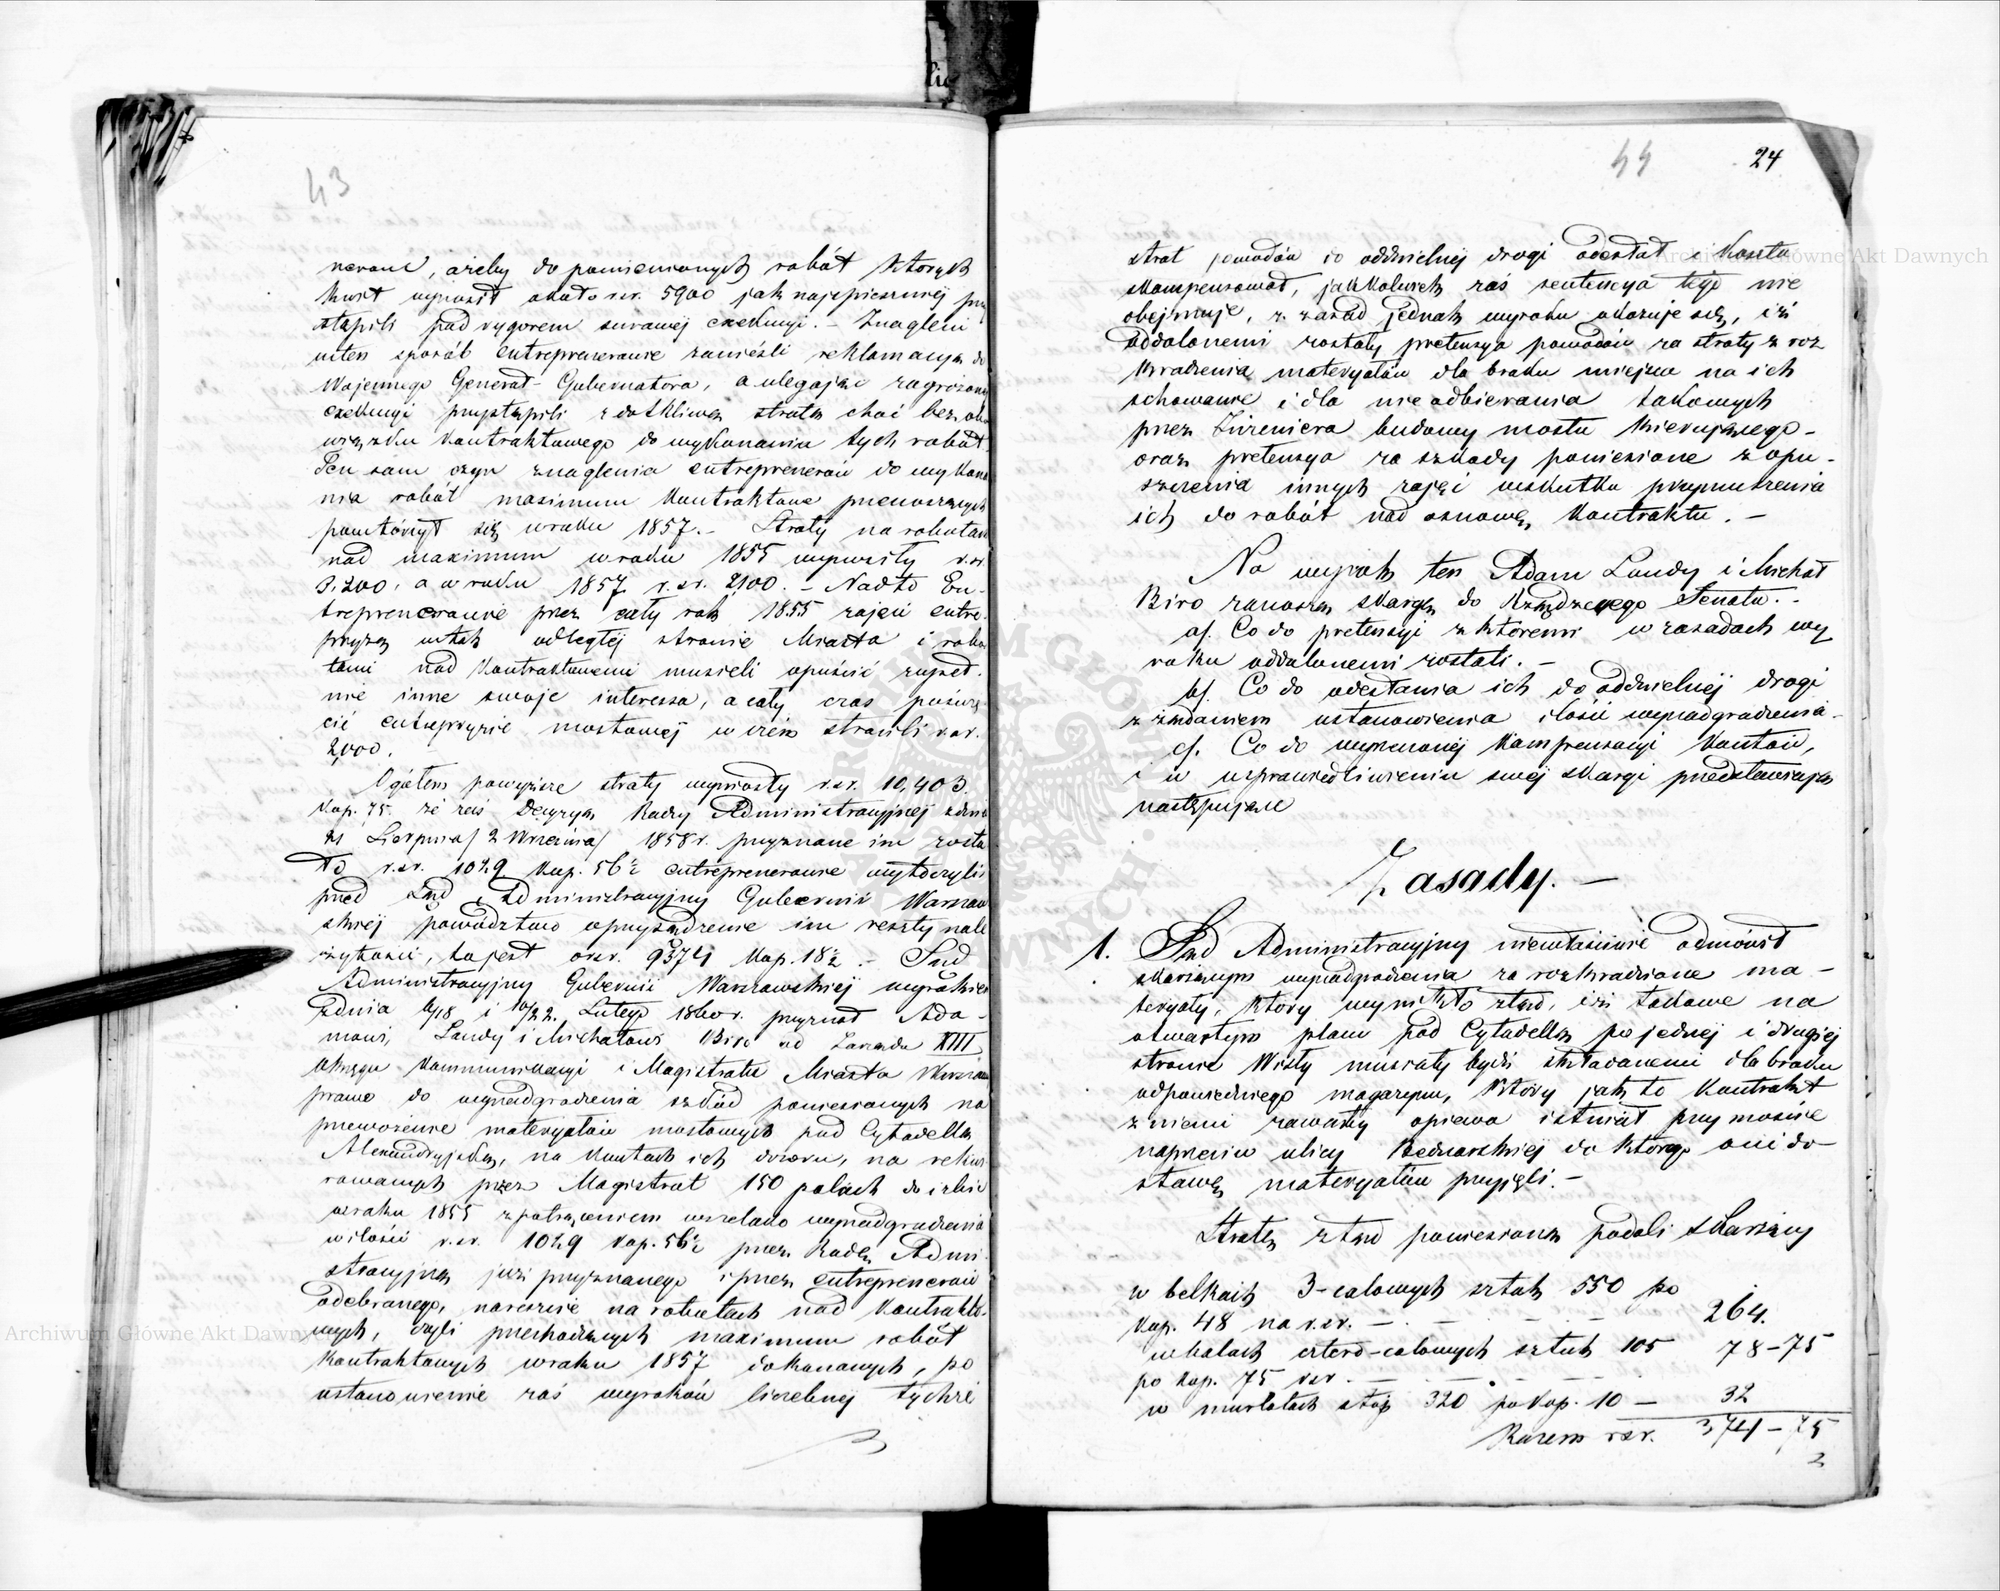 43
nerami, ażeby do pomienionych robót których
koszt wynosił około rsr. 5900 jak najspieszniej przy
stąpili pod rygorem surowej exekucyi. – Znagleni
w ten sposób entreprenerowie zanieśli reklamacyą do
Wojennego Generał-Gubernatora, a ulegając zagrożonej
exekucyi przystąpili z dotkliwą stratą choć bez obo
wiązku kontraktowego do wykonania tych robót.
Ten sam czyn znaglenia entreprenerów do wykona
nia robót maximum kontraktowe przenoszących
powtórzył się w roku 1857. – Straty na robotach
nad maximum w roku 1855 wynosiły r.sr.
3,200, a w roku 1857 r.sr. 2,100. – Nadto En-
treprenerowie przez cały rok 1855 zajęci entre
pryzą w tak odległej stronie Miasta i robo
tami nad kontraktowemi musieli opuścić zupeł-
nie inne swoje interessa, a cały czas poświę
cić entrepryzie mostowej w czém stracili r.sr.
2,000.
Ogółem powyższe straty wynosiły r.sr. 10,403.
kop. 75. że zaś Decyzyą Rady Administracyjnej z dnia
21 Sierpnia / 2 Września / 1858 r. przyznane im zosta
ło r.sr. 1029 kop. 56½ entreprenerowie wytoczyli
przed Sąd Administracyjny Gubernii Warszaw
skiej powództwo o przysądzenie im reszty nale
żytości, to jest o rsr. 9374 kop. 18½. – Sąd
Administracyjny Gubernii Warszawskiej wyrokiem
z dnia 6/18 i 10/22 Lutego 1860 r. przyznał Ada-
mowi Landy i Michałowi Biro od Zarządu XIII
Okręgu Kommunikacyi i Magistratu Miasta Warszawy
prawo do wynadgrodzenia szkód poniesionych na
przewozenie materyałów mostowych pod Cytadellą
Alexandryjską, na kosztach ich dozoru, na rekwi
rowanych przez Magistrat 150 palach do izbic
w roku 1855 z potrąceniem wszelako wynadgrodzenia
w ilości r.sr. 1029 kop. 56½ przez Radę Admi-
stracyjną już przyznanego i przez entreprenerów
odebranego, nareszcie na robotach nad kontrakto-
wych, czyli przechodzących maximum robót
kontraktowych w roku 1857 dokonanych, po
ustanowienie zaś wyroków liczebnej tychże
44
24
strat powodów do oddzielnej drogi odesłał i koszta
skompensował, jakkolwiek zaś sentencya tego nie
obejmuje, z zasad jednak wyroku okazuje się, iż
oddalonemi zostały pretensya powodów za straty z roz
kradzenia materyałów dla braku miejsca na ich
schowanie i dla nieodbierania takowych
przez Inżeniera budową mostu kierującego –
oraz pretensya za szkody poniesione z opu-
szczenia innych zajęć wskutku przymuszenia
ich do robót nad osnowę kontraktu. –
Na wyrok ten Adam Landy i Michał
Biro zanoszą skargę do Rządzącego Senatu. –
a/. Co do pretensyi z któremi w zasadach wy
roku oddalonemi zostali. –
b/. Co do odesłania ich do oddzielnej drogi
z żądaniem ustanowienia ilości wynadgrodzenia –
c/. Co do wyrzeczonej kompensacyi kosztów,
i w usprawiedliwieniu swej skargi przedstawiają
następujące
Zasady. –
1. Sąd Administracyjny niewłaściwie odmówił
skarżącym wynadgrodzenia za rozkradzione ma-
teryały, który wyniknął ztąd, iż takowe na
otwartym placu pod Cytadellą po jednej i drugiej
stronie Wisły musiały być składanemi dla braku
odpowiedniego magazynu, który jak to kontrakt
z niemi zawarty opiewa istniał przy moście
naprzeciw ulicy Bednarskiej do którego oni do-
stawę materyałów przyjęli. –
Stratę ztąd poniesioną podali skarżący
w belkach 3-calowych sztuk 550 po
kop. 48 na r.sr. – . – . – – 264.
w balach cztero-calowych sztuk 105 78–75
po kop. 75 rsr. – – . – –
w murłatach stóp 320 po kop. 10 – 32
Razem rsr. 374–75